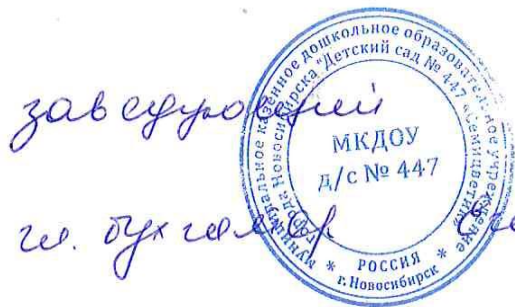 заведующей
гл. бухгалтер
муниципальное казенное дошкольное образовательное учреждение
города Новосибирска "Детский сад № 447 "Семицветик"
МКДОУ
д/с № 447
* РОССИЯ *
г. Новосибирск